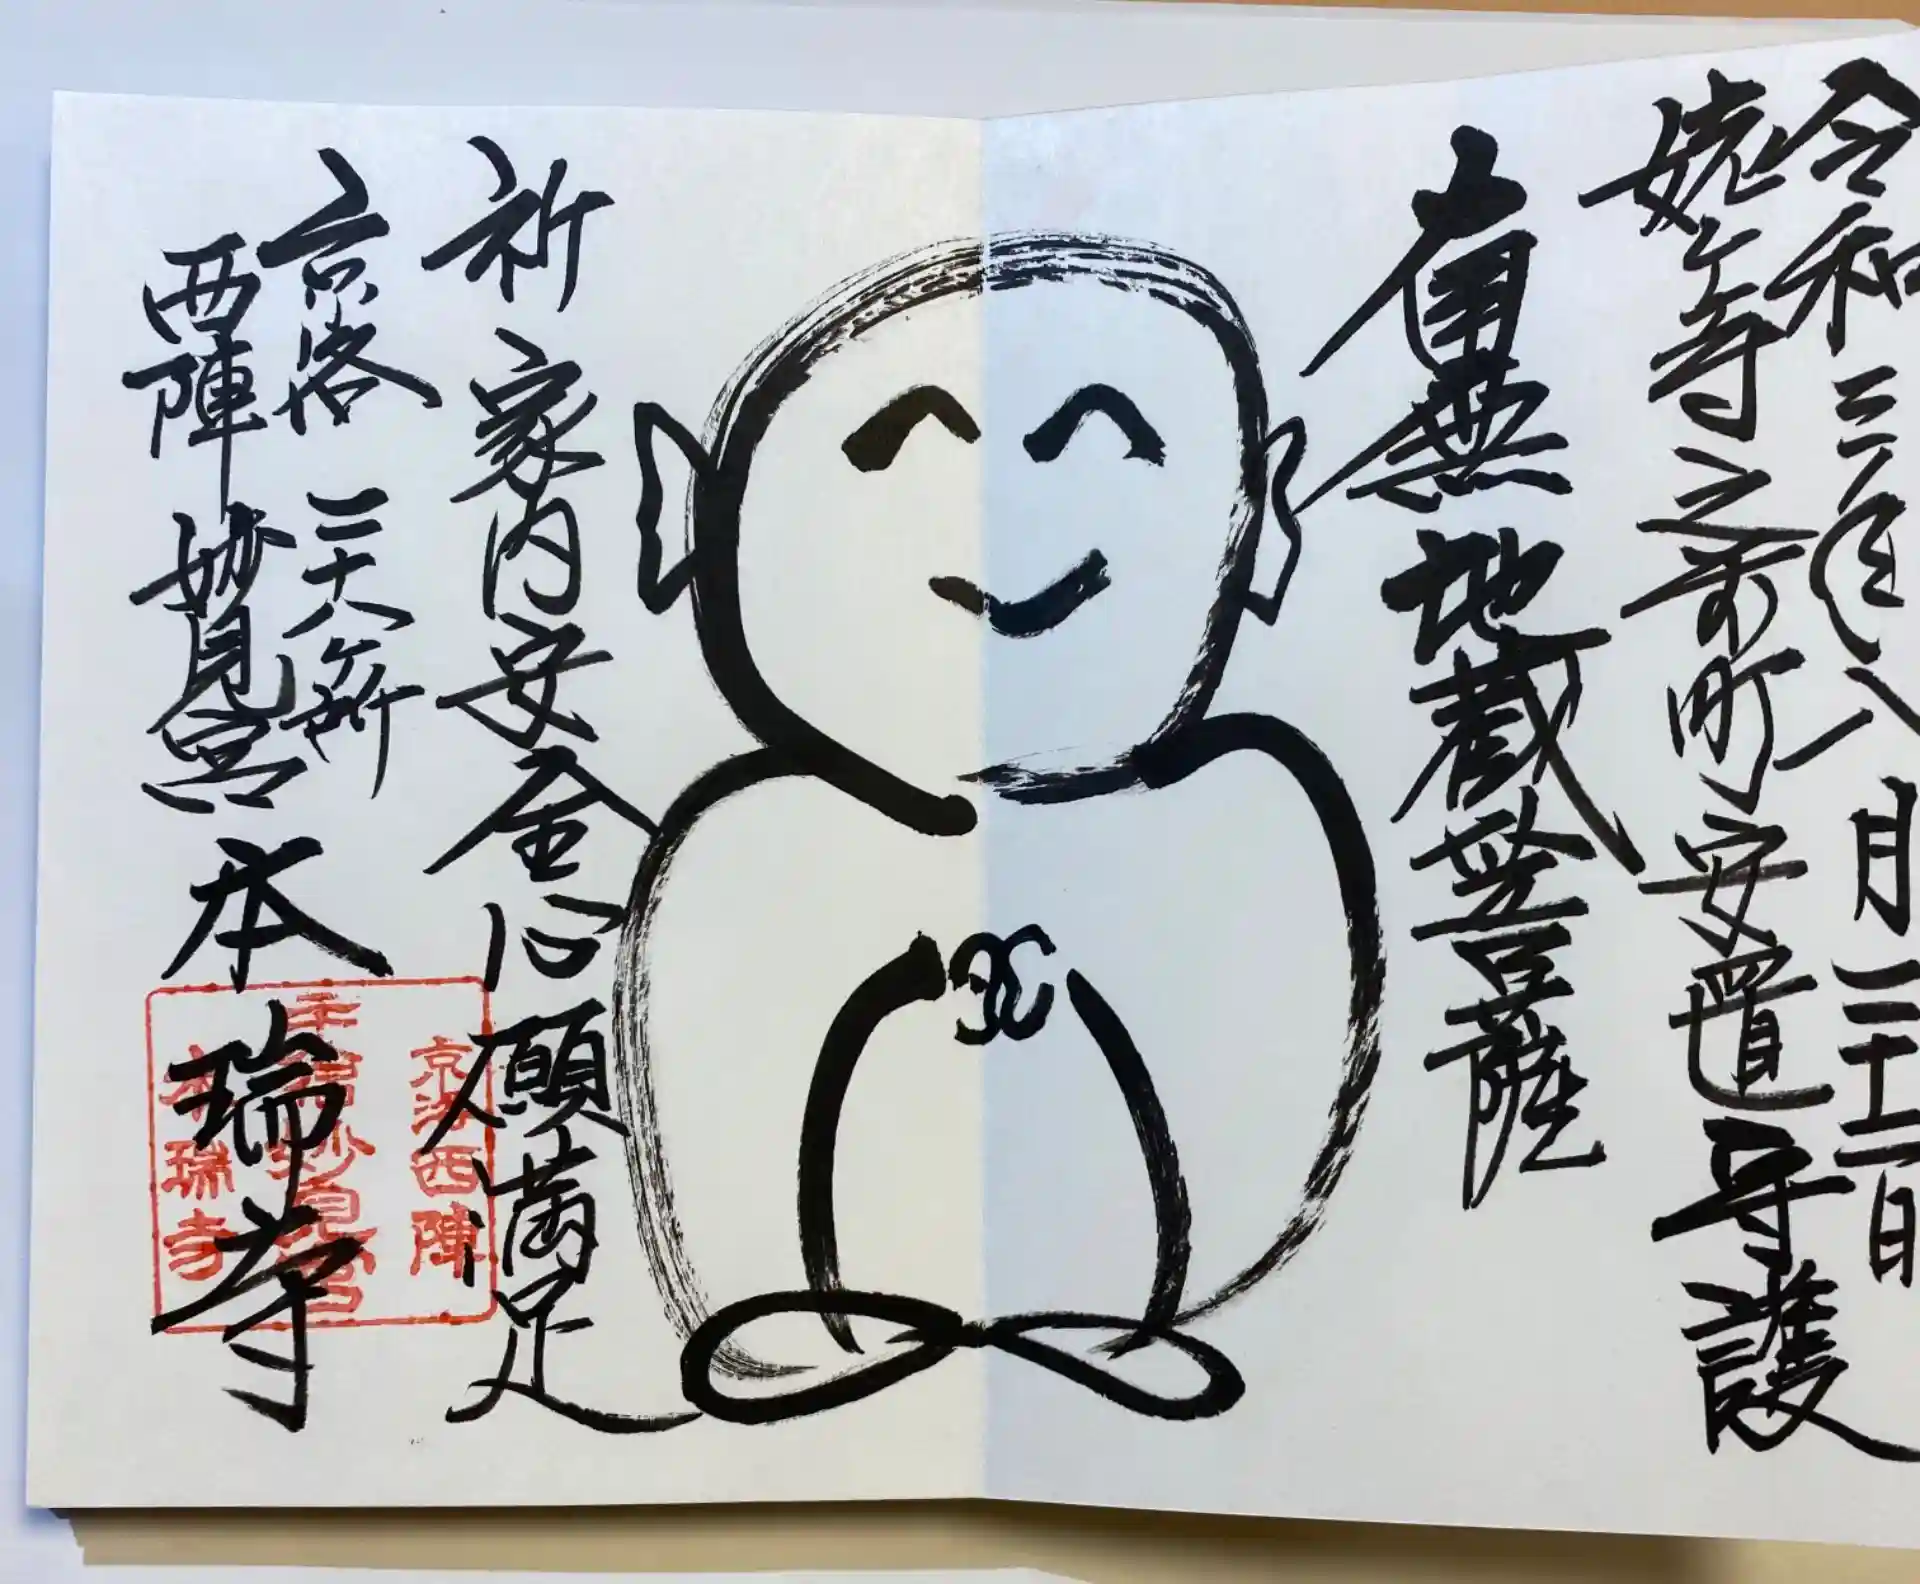 令和三年八月二十二日
姥ヶ寺之前町安置守護
有無地蔵菩薩
祈家内安全心願満足
京洛二十八ヶ所
西陣妙見宮
本瑞寺
京洛西陣
本瑞寺